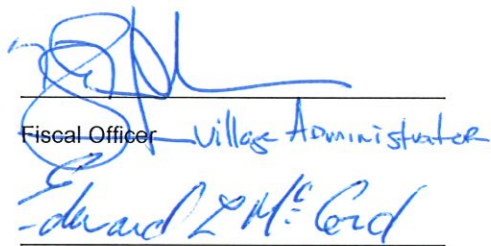 Fiscal Officer Village Administrator
Edward L McCord